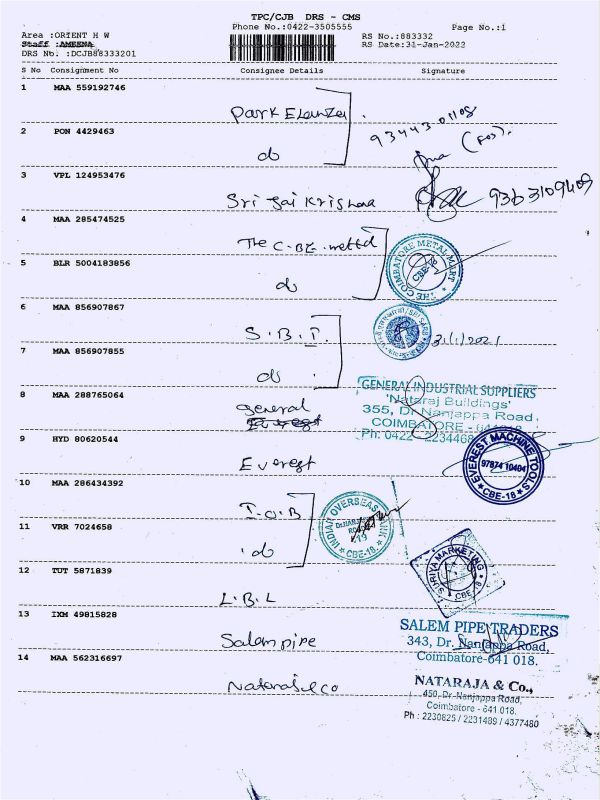 TPC/CJB DRS - CMS
Phone No.:0422-3505555 Page No.:1
Area :ORIENT H W RS No.:883332
Staff :AMEENA RS Date:31-Jan-2022
DRS No. :DCJB88333201
S No Consignment No Consignee Details Signature
1 MAA 559192746
Park Elanza
93443 01108
2 PON 4429463
do
(Pos).
3 VPL 124953476
Sri Jai Krishna 9363109409
4 MAA 285474525
The C.BE.
THE COIMBATORE METAL MART
CBE-18
5 BLR 5004183856
do
6 MAA 856907867
S.B.I. 31/1/2021
7 MAA 856907855
do
8 MAA 288765064
General
Everest
GENERAL INDUSTRIAL SUPPLIERS
'Nataraj Buildings'
355, Dr. Nanjappa Road,
COIMBATORE - 641018
Ph: 0422 - 2234468
9 HYD 80620544
Everest
EVEREST MACHINE TOOLS
97874 10404
CBE-18
10 MAA 286434392
I.O.B
INDIAN OVERSEAS BANK
ROAD
CBE-18
11 VRR 7024658
do
SURIYA MARKETING
CBE-18
12 TUT 5871839
L.B.L
13 IXM 49815828
Salem pipe
SALEM PIPE TRADERS
343, Dr. Nanjappa Road,
Coimbatore-641 018.
14 MAA 562316697
Nataraj & co
NATARAJA & Co.,
450, Dr. Nanjappa Road,
Coimbatore - 641 018.
Ph : 2230825 / 2231489 / 4377480